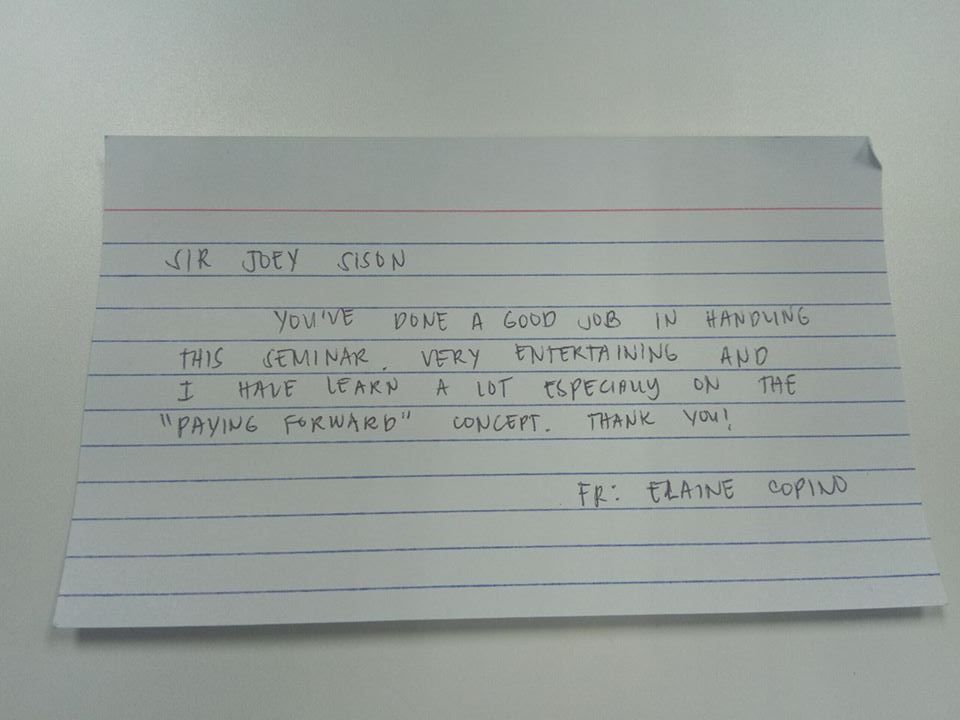 SIR JOEY SISON
YOU'VE DONE A GOOD JOB IN HANDLING
THIS SEMINAR. VERY ENTERTAINING AND
I HAVE LEARN A LOT ESPECIALLY ON THE
"PAYING FORWARD" CONCEPT. THANK YOU!
FR: ELAINE COPINO